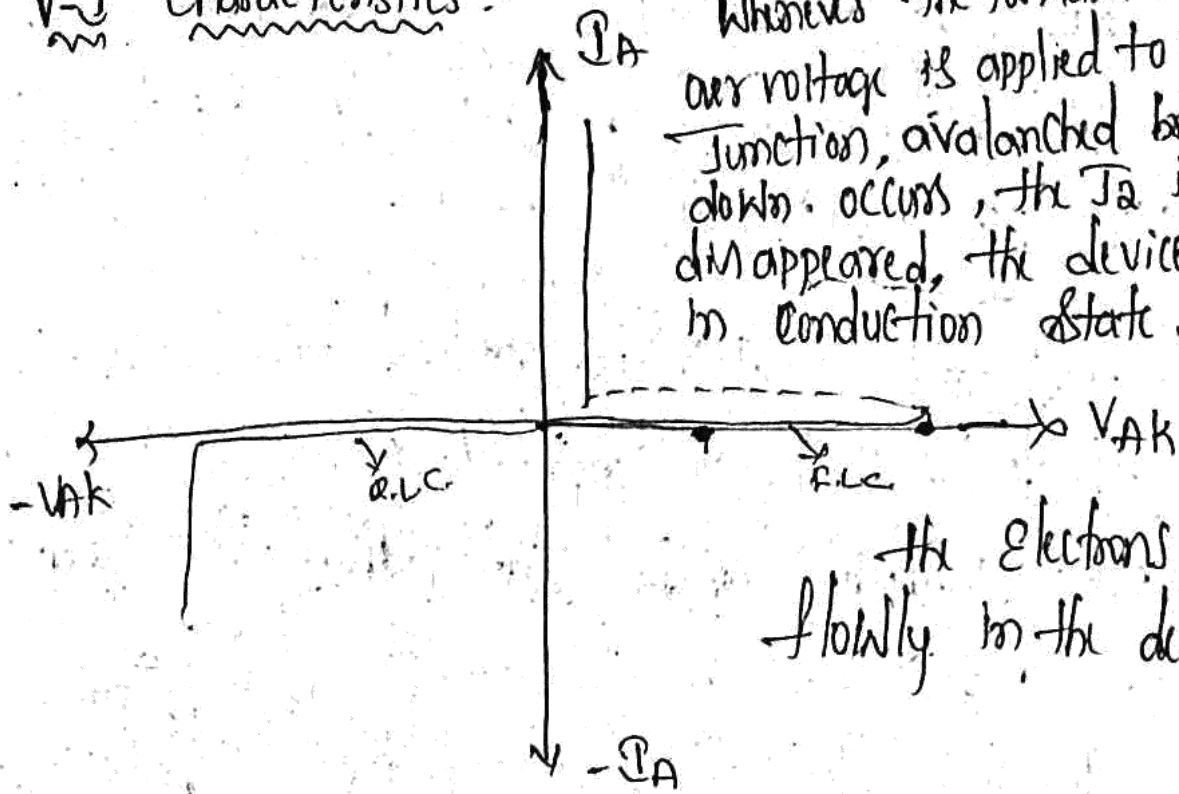 V-I Characteristics.
Whenever the
over voltage is applied to
Junction, avalanched
down. occurs, the J2
disappeared, the device
in conduction state.
IA
VAK
-VAK
R.L.C.
F.L.C.
the Electrons
flowly in the
-IA